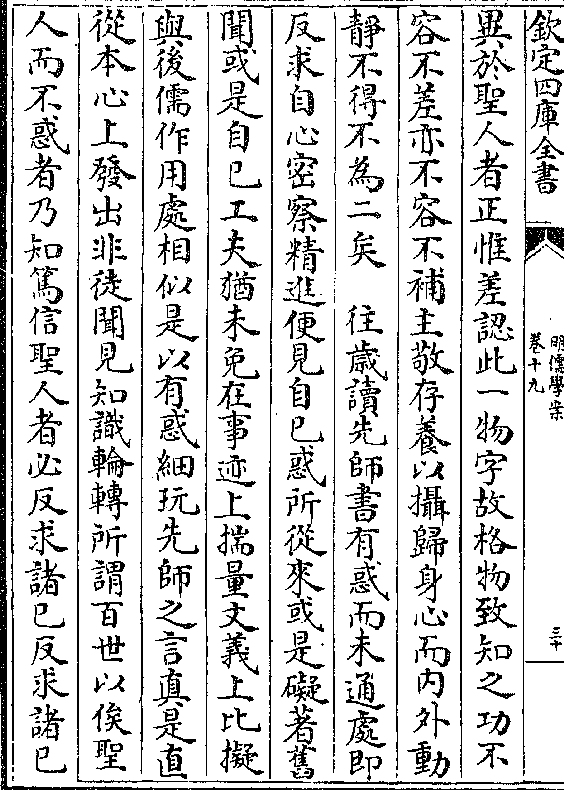 欽定四庫全書
明儒學案
卷十九
三十
異於聖人者正惟差認此一物字故格物致知之功不
容不差亦不容不補主敬存養以攝歸身心而内外動
靜不得不為二矣　往歲讀先師書有惑而未通處即
反求自心密察精進便見自己惑所從來或是礙著舊
聞或是自己工夫猶未免在事迹上揣量文義上比擬
與後儒作用處相似是以有惑細玩先師之言真是直
從本心上發出非徒聞見知識輪轉所謂百世以俟聖
人而不惑者乃知篤信聖人者必反求諸己反求諸己